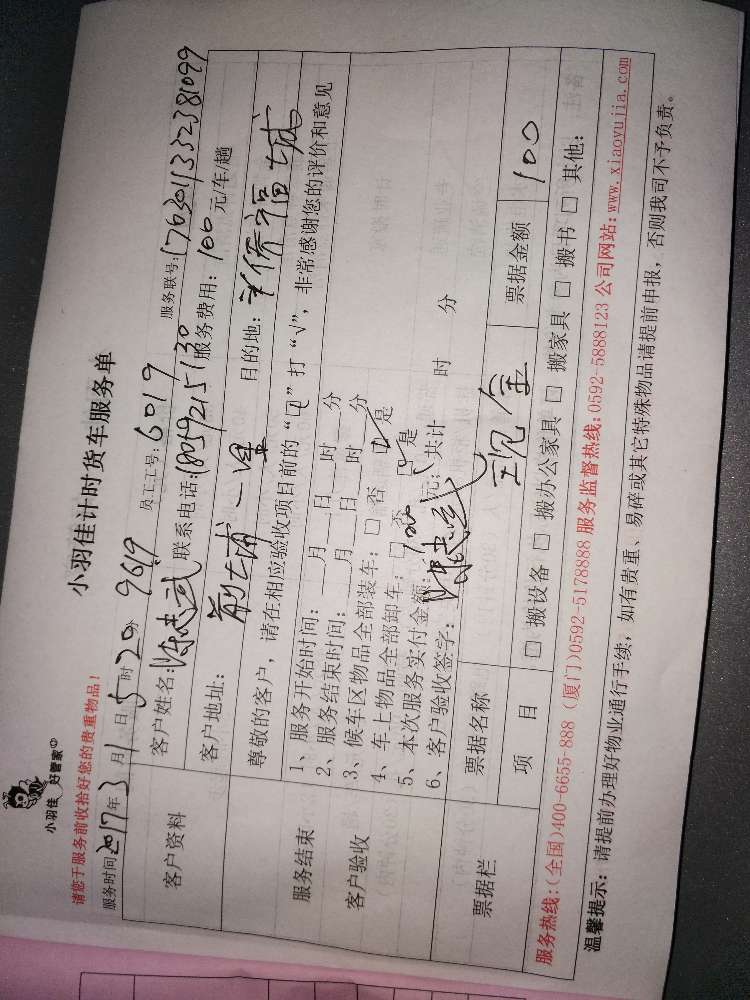 小羽佳 好管家
小羽佳计时货车服务单
请您于服务前收拾好您的贵重物品！
服务时间2017年3月1日5时20分 9619 员工工号：6019 服务联号：1763011332381099
客户资料
客户姓名：陈忠武 联系电话：18059215130 服务费用：100 元/车/趟
客户地址： 目的地：
尊敬的客户，请在相应验收项目前的“口”打“√”，非常感谢您的评价和意见
服务结束
客户验收
1、服务开始时间：___月___日___时___分
2、服务结束时间：___月___日___时___分
3、候车区物品全部装车：□ 否 □ 是
4、车上物品全部卸车：□ 否 □ 是
5、本次服务实付金额：100 元；共计 时 分
6、客户验收签字：陈忠武
票据栏
票据名称 现金 票据金额 100
项 目 □ 搬设备 □ 搬办公家具 □ 搬家具 □ 搬书 □ 其他：
服务热线：(全国)400-6655-888 (厦门)0592-5178888 服务监督热线：0592-5888123 公司网站：www.xiaoyujia.com
温馨提示：请提前办理好物业通行手续，如有贵重、易碎或其它特殊物品请提前申报，否则我司不予负责。